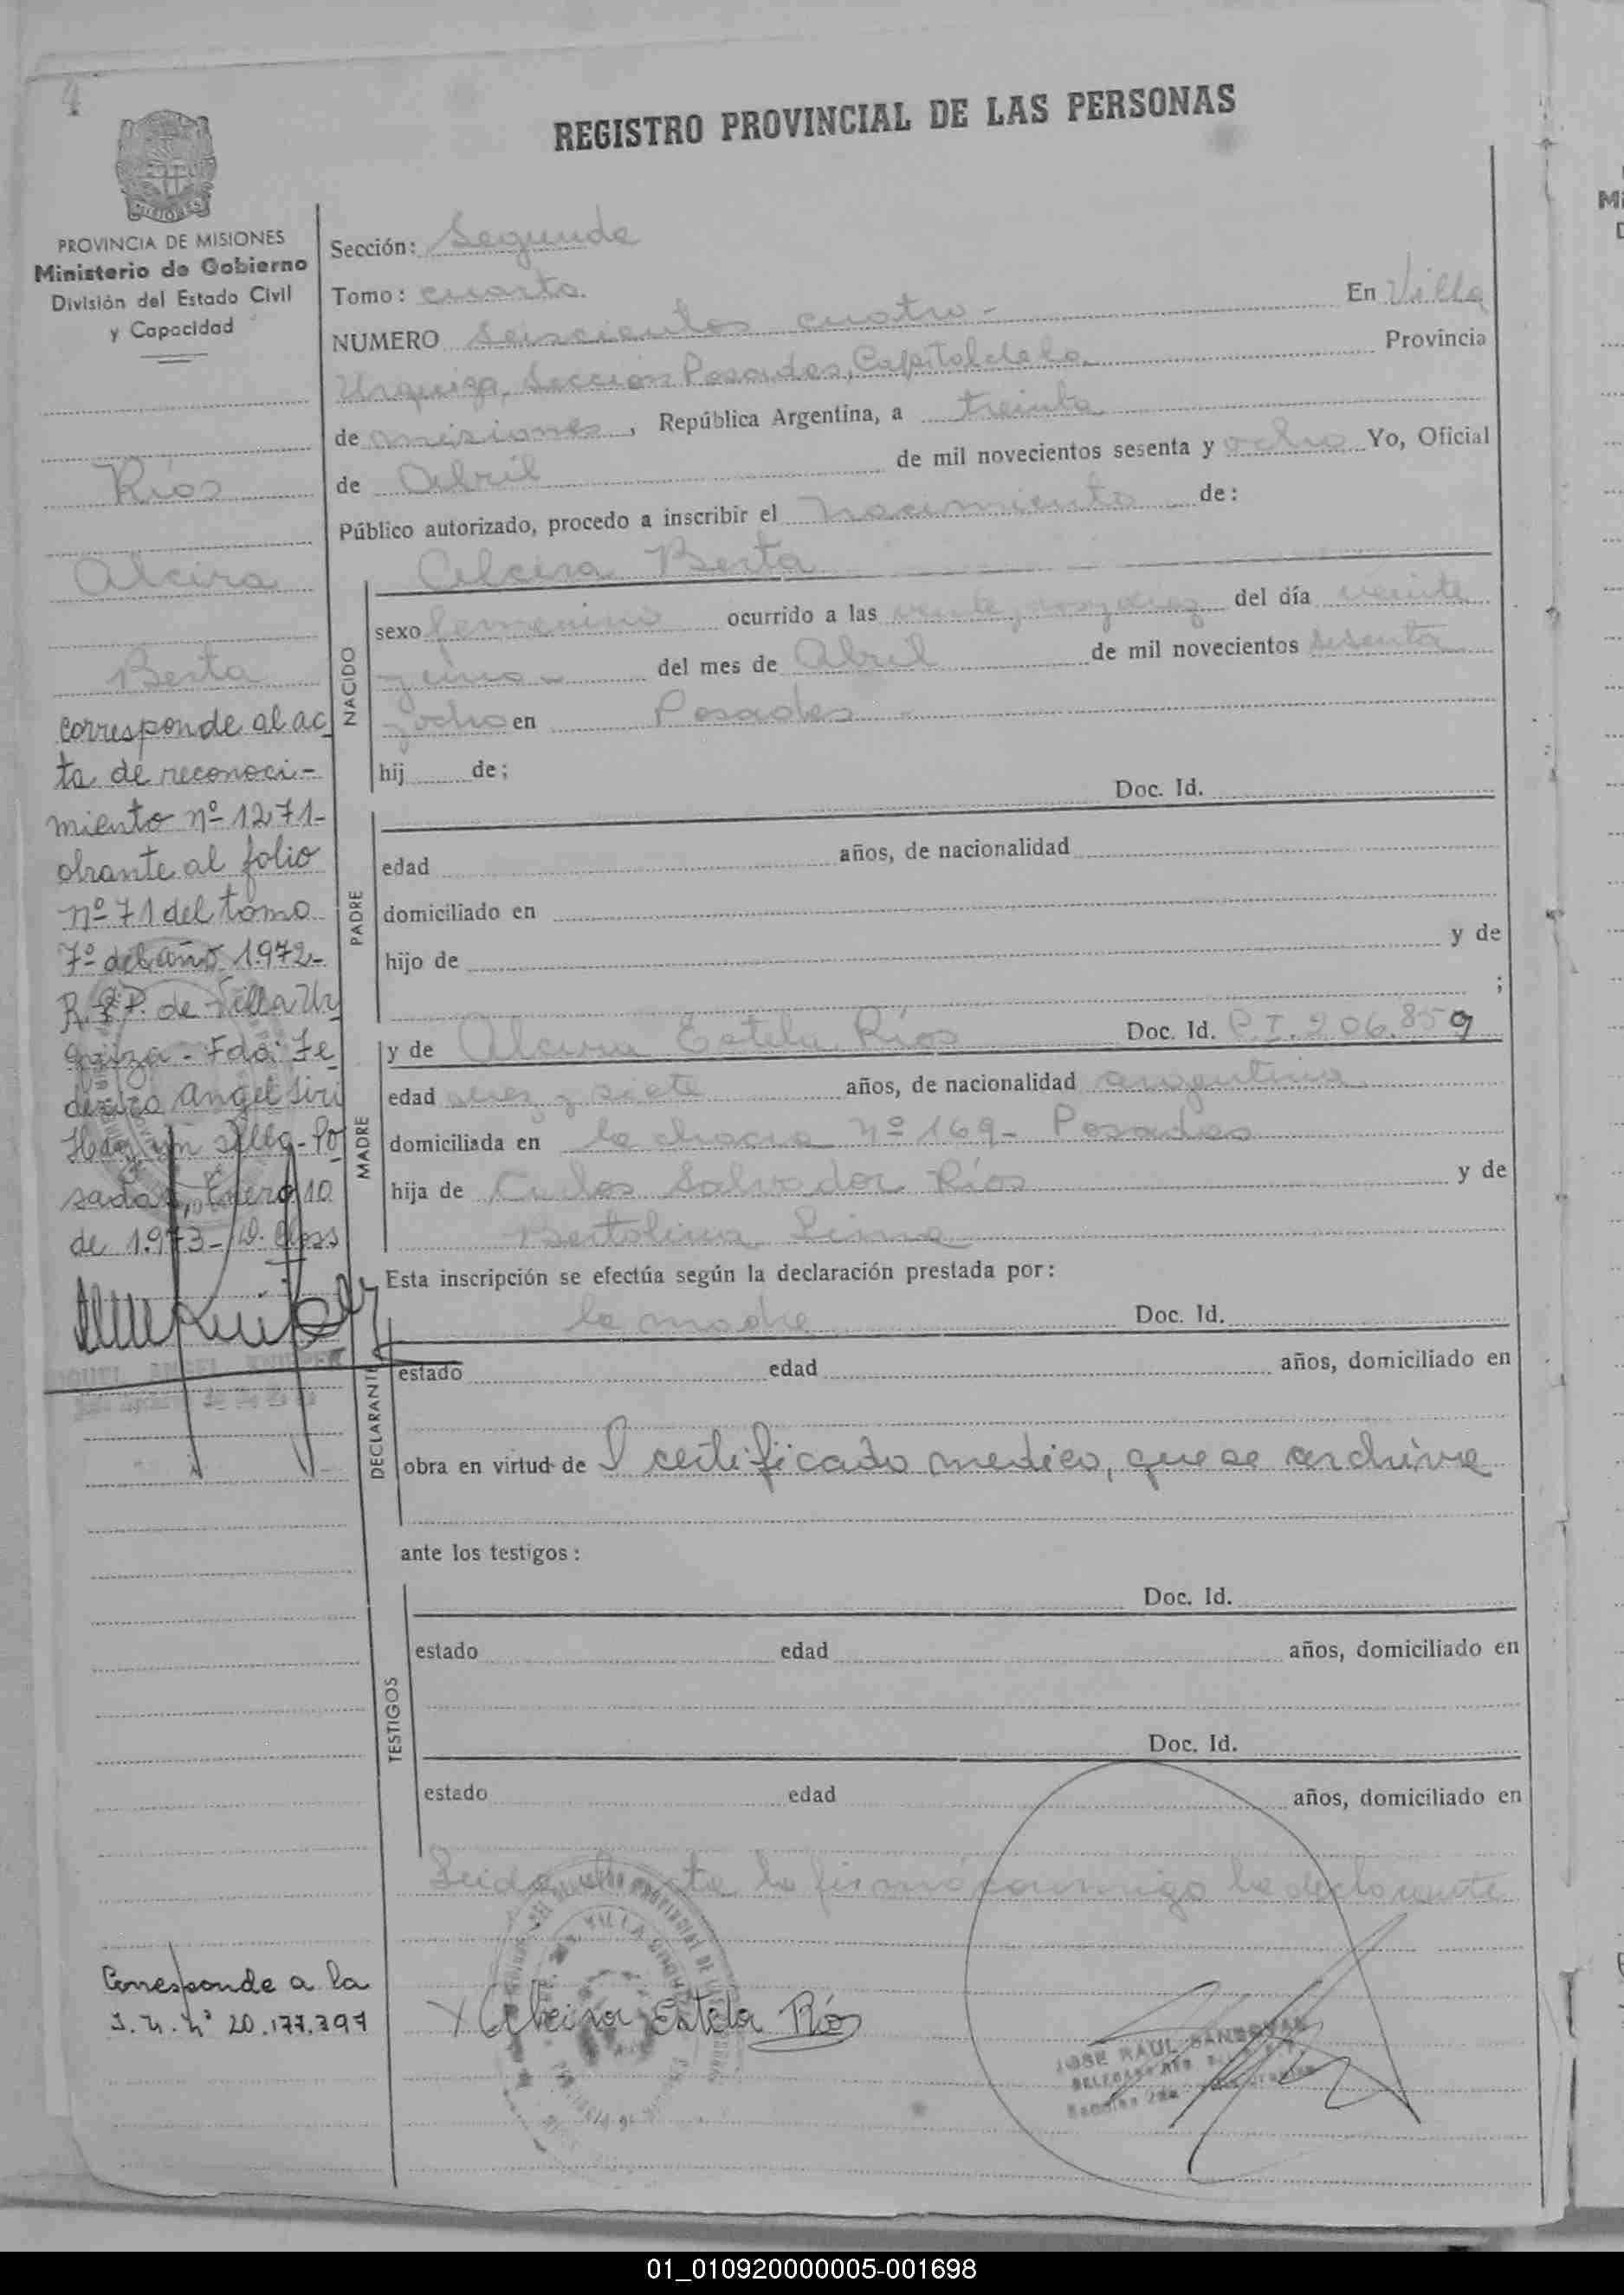 REGISTRO PROVINCIAL DE LAS PERSONAS
MISIONES
PROVINCIA DE MISIONES
Ministerio de Gobierno
División del Estado Civil
y Capacidad
Ríos
Alcira
Berta
corresponde al ac
ta de reconoci-
miento nº 1271-
obrante al folio
nº 71 del tomo
7º del año 1972-
R.P.P. de Villa Ur
quiza - Fdo: Fe
derico Angel Siri
Hay un sello - Po
sadas, Enero 10
de 1.973-
Corresponde a la
20.177.397
Sección: Segunda
Tomo: cuarto.
NUMERO seiscientos cuatro - En Villa
Urquiza, Sección Posadas, Capital de la Provincia
de misiones, República Argentina, a treinta
de Abril de mil novecientos sesenta y ocho Yo, Oficial
Público autorizado, procedo a inscribir el nacimiento de:
Alcira Berta
NACIDO
sexo femenino ocurrido a las del día veinte
y uno - del mes de Abril de mil novecientos sesenta
y ocho en Posadas -
hij de;
PADRE
Doc. Id.
edad años, de nacionalidad
domiciliado en
hijo de y de
;
MADRE
y de Alcira Estela Ríos Doc. Id. C.I. 206.859
edad diez y siete años, de nacionalidad argentina
domiciliada en la chacra nº 169- Posadas
hija de Carlos Salvador Ríos y de
Bertolina
Esta inscripción se efectúa según la declaración prestada por:
DECLARANTE
la madre Doc. Id.
estado edad años, domiciliado en
obra en virtud de certificado medico, que se archiva
ante los testigos:
TESTIGOS
Doc. Id.
estado edad años, domiciliado en
Doc. Id.
estado edad años, domiciliado en
Leida el acta la firmó conmigo la declarante
X Alcira Estela Ríos
JOSE RAUL SANDOVAL
01_010920000005-001698